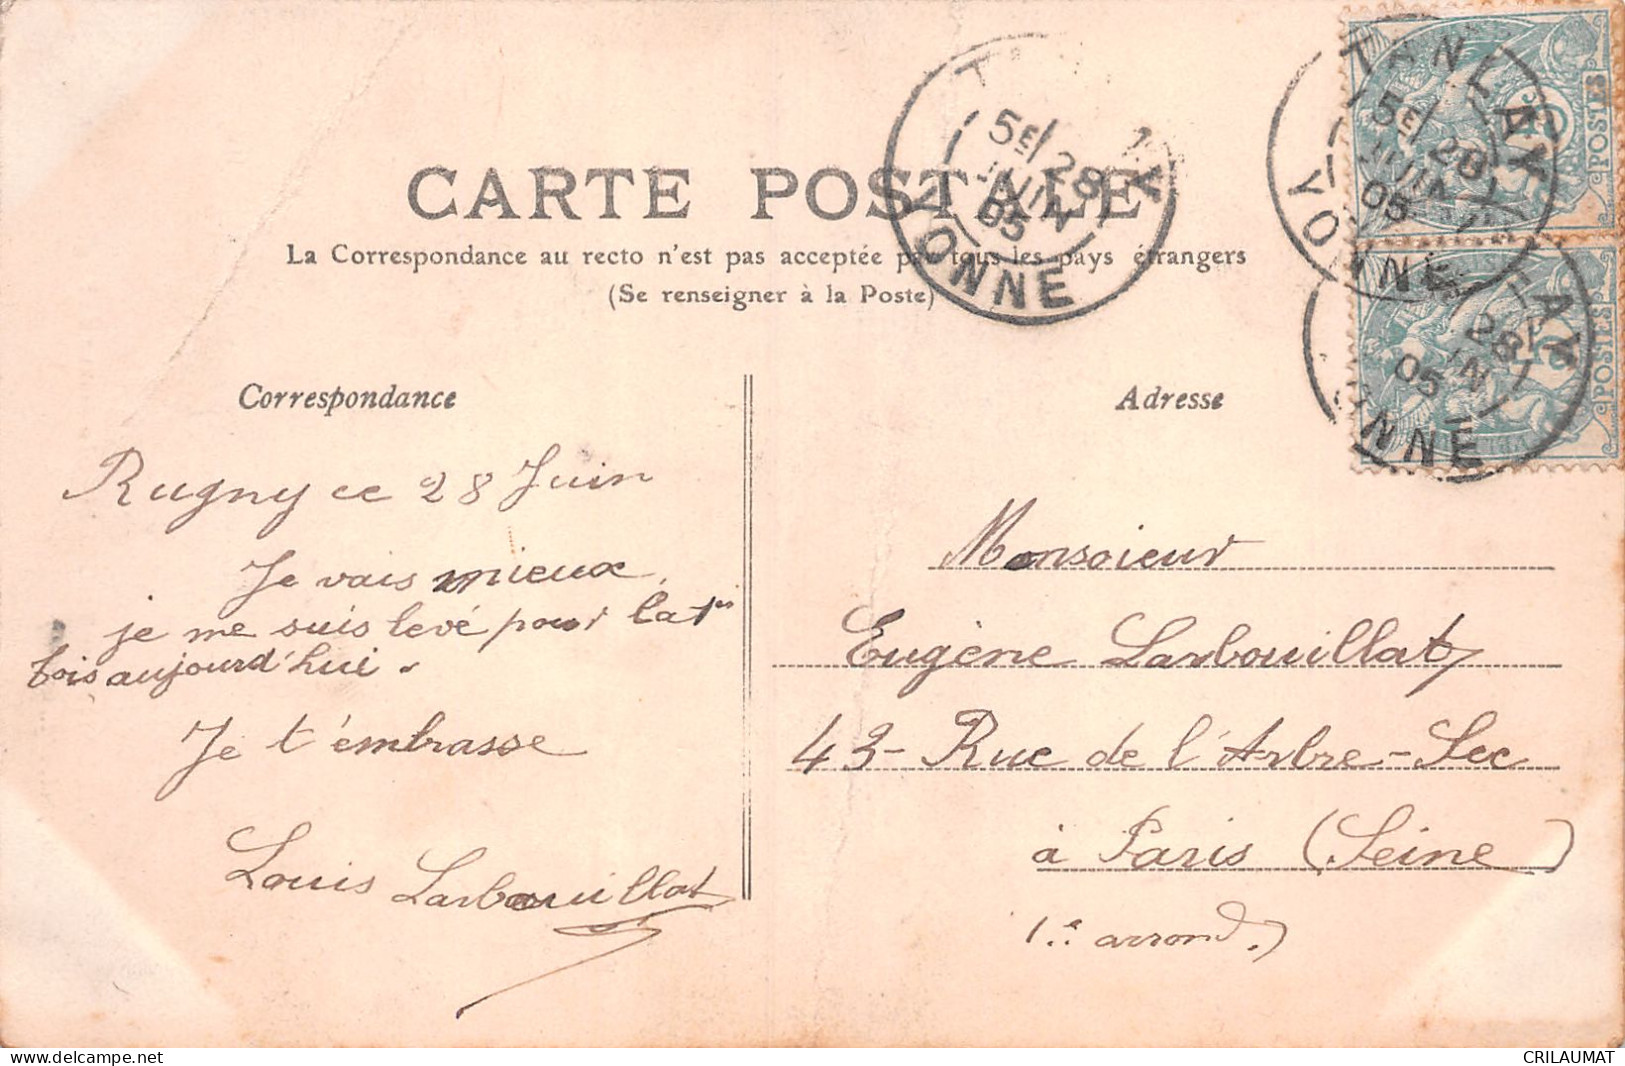 CARTE POSTALE
La Correspondance au recto n'est pas acceptée par tous les pays étrangers
(Se renseigner à la Poste)
TANLAY
5E/ 28
JUIN
05
YONNE
POSTES
POSTES
Correspondance
Rugny ce 28 Juin
Je vais mieux,
je me suis levé pour la 1re
fois aujourd'hui.
Je t'embrasse
Louis Larbouillat
Adresse
Monsoieur
Eugène Larbouillat
43 - Rue de l'Arbre-Sec
à Paris (Seine)
1er arrond.)
www.delcampe.net
CRILAUMAT